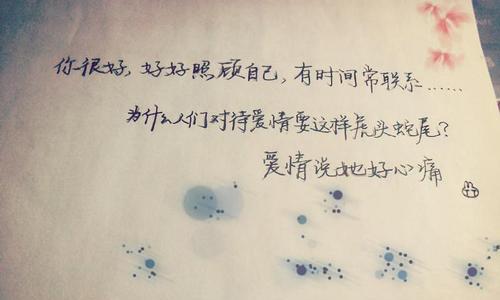 你很好，好好照顾自己，有时间常联系……
为什么人们对待爱情要这样虎头蛇尾？
爱情说她好心痛